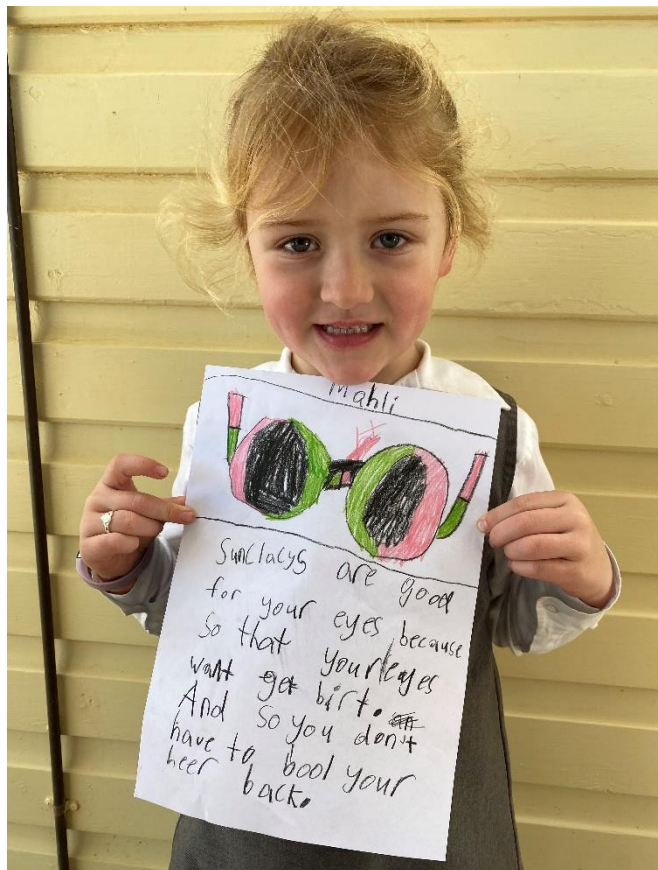 Mahli
Sunclacys are good
for your eyes because
so that your eyes
want get birt.
And so you don't
have to bool your
heer back.